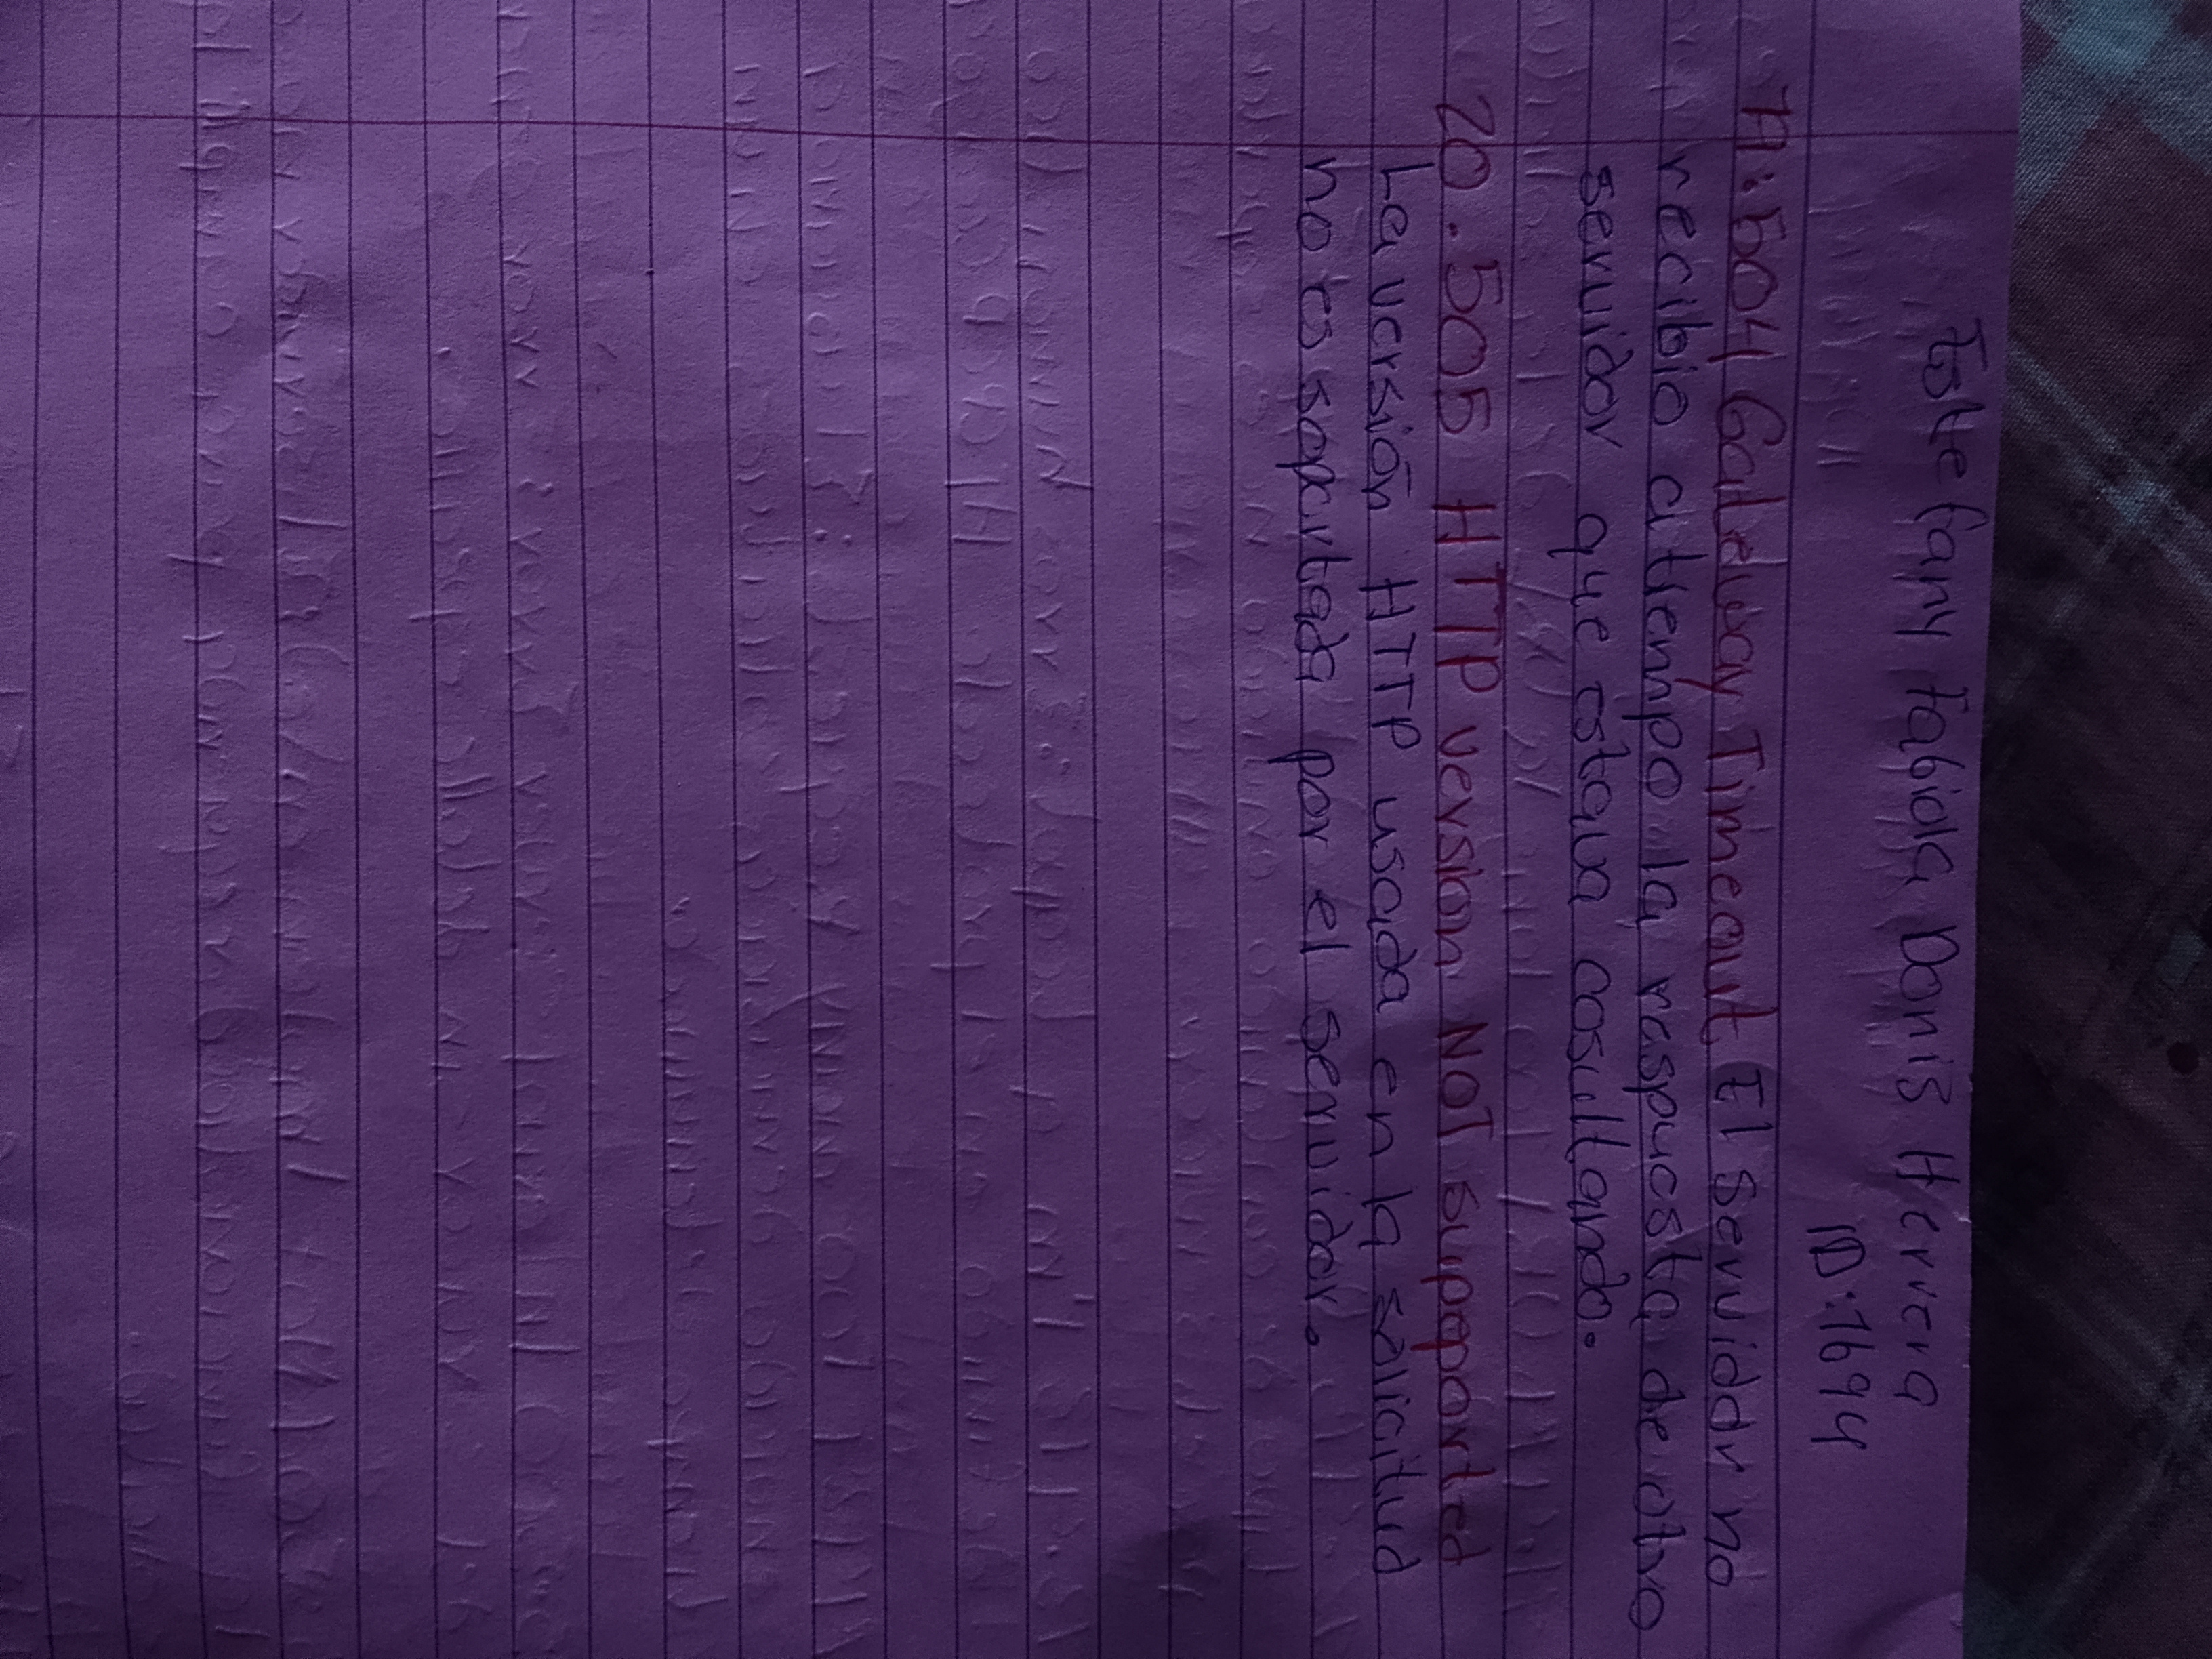 Estefany fabiola Donis Herrera
ID:7694
19:504 Gateway Timeout El servidor no
recibio a tiempo la respuesta de otro
servidor que estava cosultando.
20.505 HTTP version Not supported
La versión HTTP usada en la solicitud
no es soportada por el servidor.